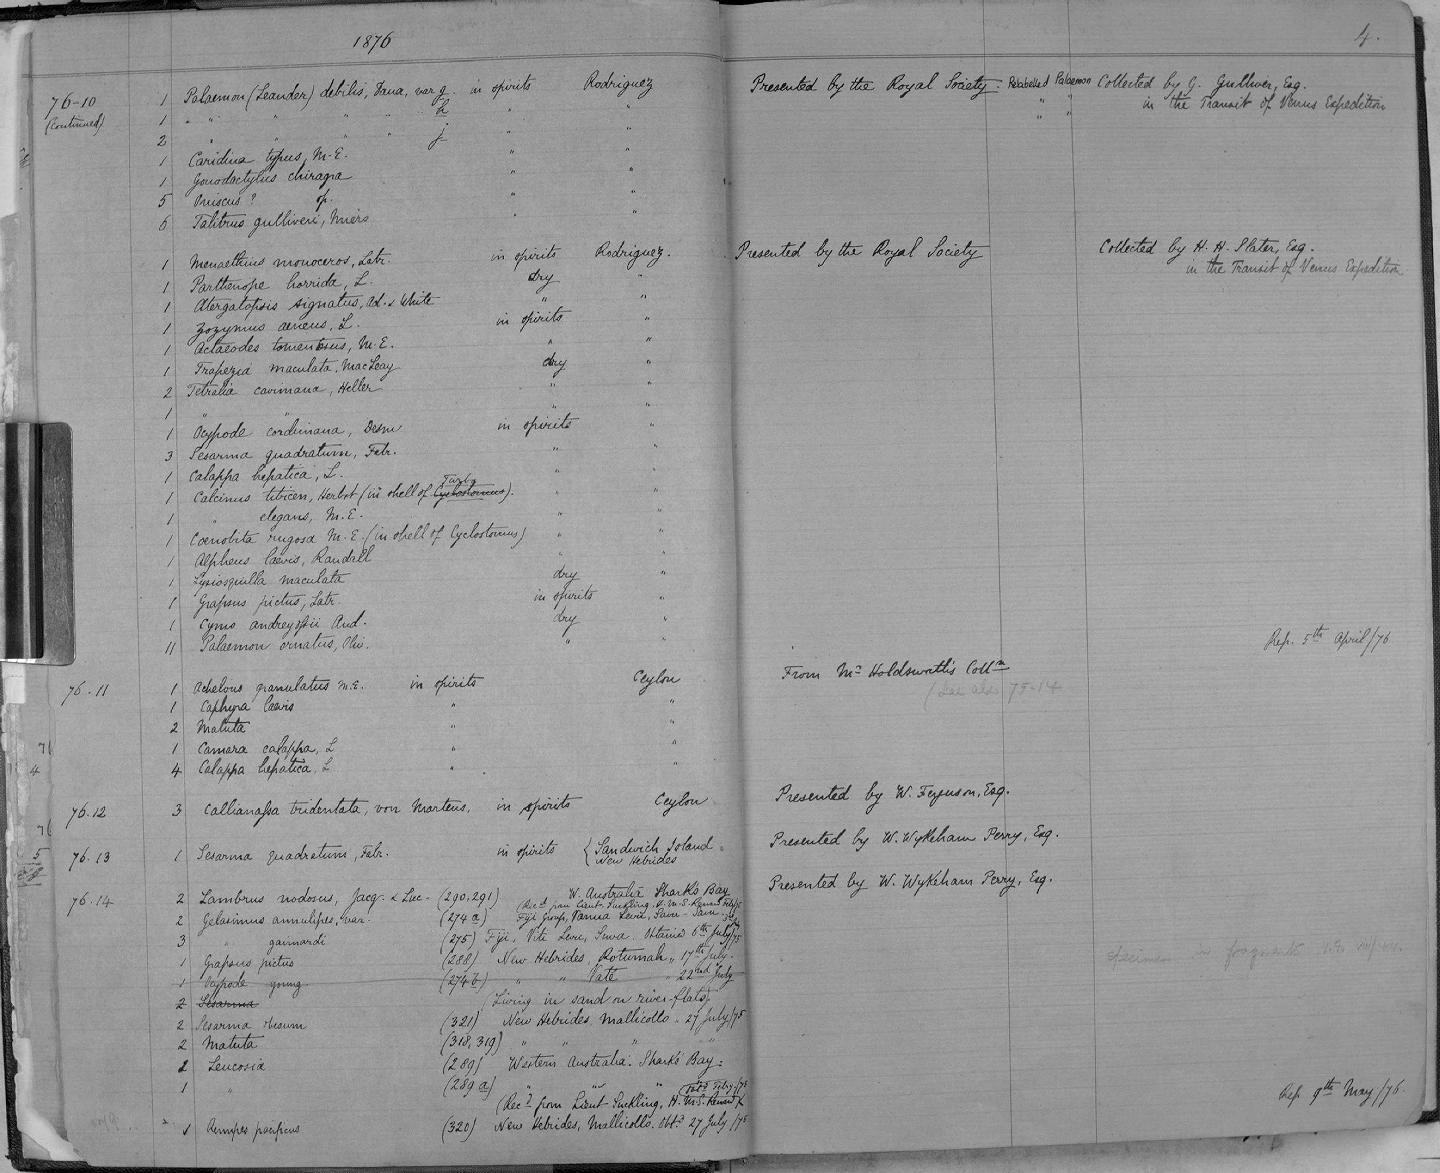 1876
4.
76-10 1 Palaemon (Leander) debilis, Dana, var g. in spirits Rodriguez Presented by the Royal Society. Relabelled Palaemon Collected by G. Gulliver, Esq.
(Continued) 1 " " " " " " h " " " " in the Transit of Venus Expedition
2 " " " " j " "
1 Caridina typus, M-E. " "
1 Gonodactylus chiragra " "
5 Oniscus ? sp. " "
6 Talitrus gulliveri, Miers " "
1 Menaethius monoceros, Latr. in spirits Rodriguez. Presented by the Royal Society Collected by H. H. Slater, Esq.
1 Parthenope horrida, L. dry " in the Transit of Venus Expedition
1 Atergatopsis signatus, Ad. & White " "
1 Zozymus aeneus, L. in spirits "
1 Actaeodes tomentosus, M.E. " "
1 Trapezia maculata, MacLeay dry "
2 Tetralia cavimana, Heller " "
1 " " " "
1 Ocypode cordimana, Desm in spirits "
3 Sesarma quadratum, Fabr. " "
1 Calappa hepatica, L. " "
1 Calcinus tibicen, Herbst (in shell of Cyclostomus Turbo). " "
1 " elegans, M.E. " "
1 Coenobita rugosa M.E. (in shell of Cyclostomus) " "
1 Alpheus laevis, Randall " "
1 Lysiosquilla maculata dry "
1 Grapsus pictus, Latr. in spirits "
1 Cymo andreossii Aud. dry "
11 Palaemon ornatus, Oliv. " " Rep. 5th April/76
76.11 1 Achelous granulatus M.E. in spirits Ceylon From Mr Holdsworth's Colln
1 Caphyra laevis " " (See also 75-14
2 Matuta " "
1 Camara calappa, L " "
4 Calappa hepatica, L " "
76.12 3 Callianassa tridentata, von Martens, in spirits Ceylon Presented by W. Ferguson, Esq.
76.13 1 Sesarma quadratum, Fabr. in spirits { Sandwich Island Presented by W. Wykeham Perry, Esq.
New Hebrides
76.14 2 Lambrus nodosus, Jacq. & Luc- (290, 291) W. Australia Shark's Bay Presented by W. Wykeham Perry, Esq.
(Recd from Lieut. Suckling, H.M.S.
2 Gelasimus annulipes, var. (274a) Fiji Group, Vanua Levu, Savu-Savu
3 " gaimardi (275) Fiji, Viti Levu, Suva. Obtained 6th July/75
1 Grapsus pictus (288) New Hebrides, Rotumah, " 17th July.
1 Ocypode young. (274b) " " Vate " 22nd July
2 Sesarma (Living in sand on river-flats).
2 Sesarma obesum (321) New Hebrides, Mallicollo. 27 July/75
2 Matuta (318, 319) " " " "
1 Leucosia (289) Western Australia. Shark's Bay.
1 " (289a) " " "
(Recd from Lieut Suckling, H.M.S.
1 Remipes pacificus (320) New Hebrides, Mallicollo. Obtd 27 July/75
Rep. 9th May/76